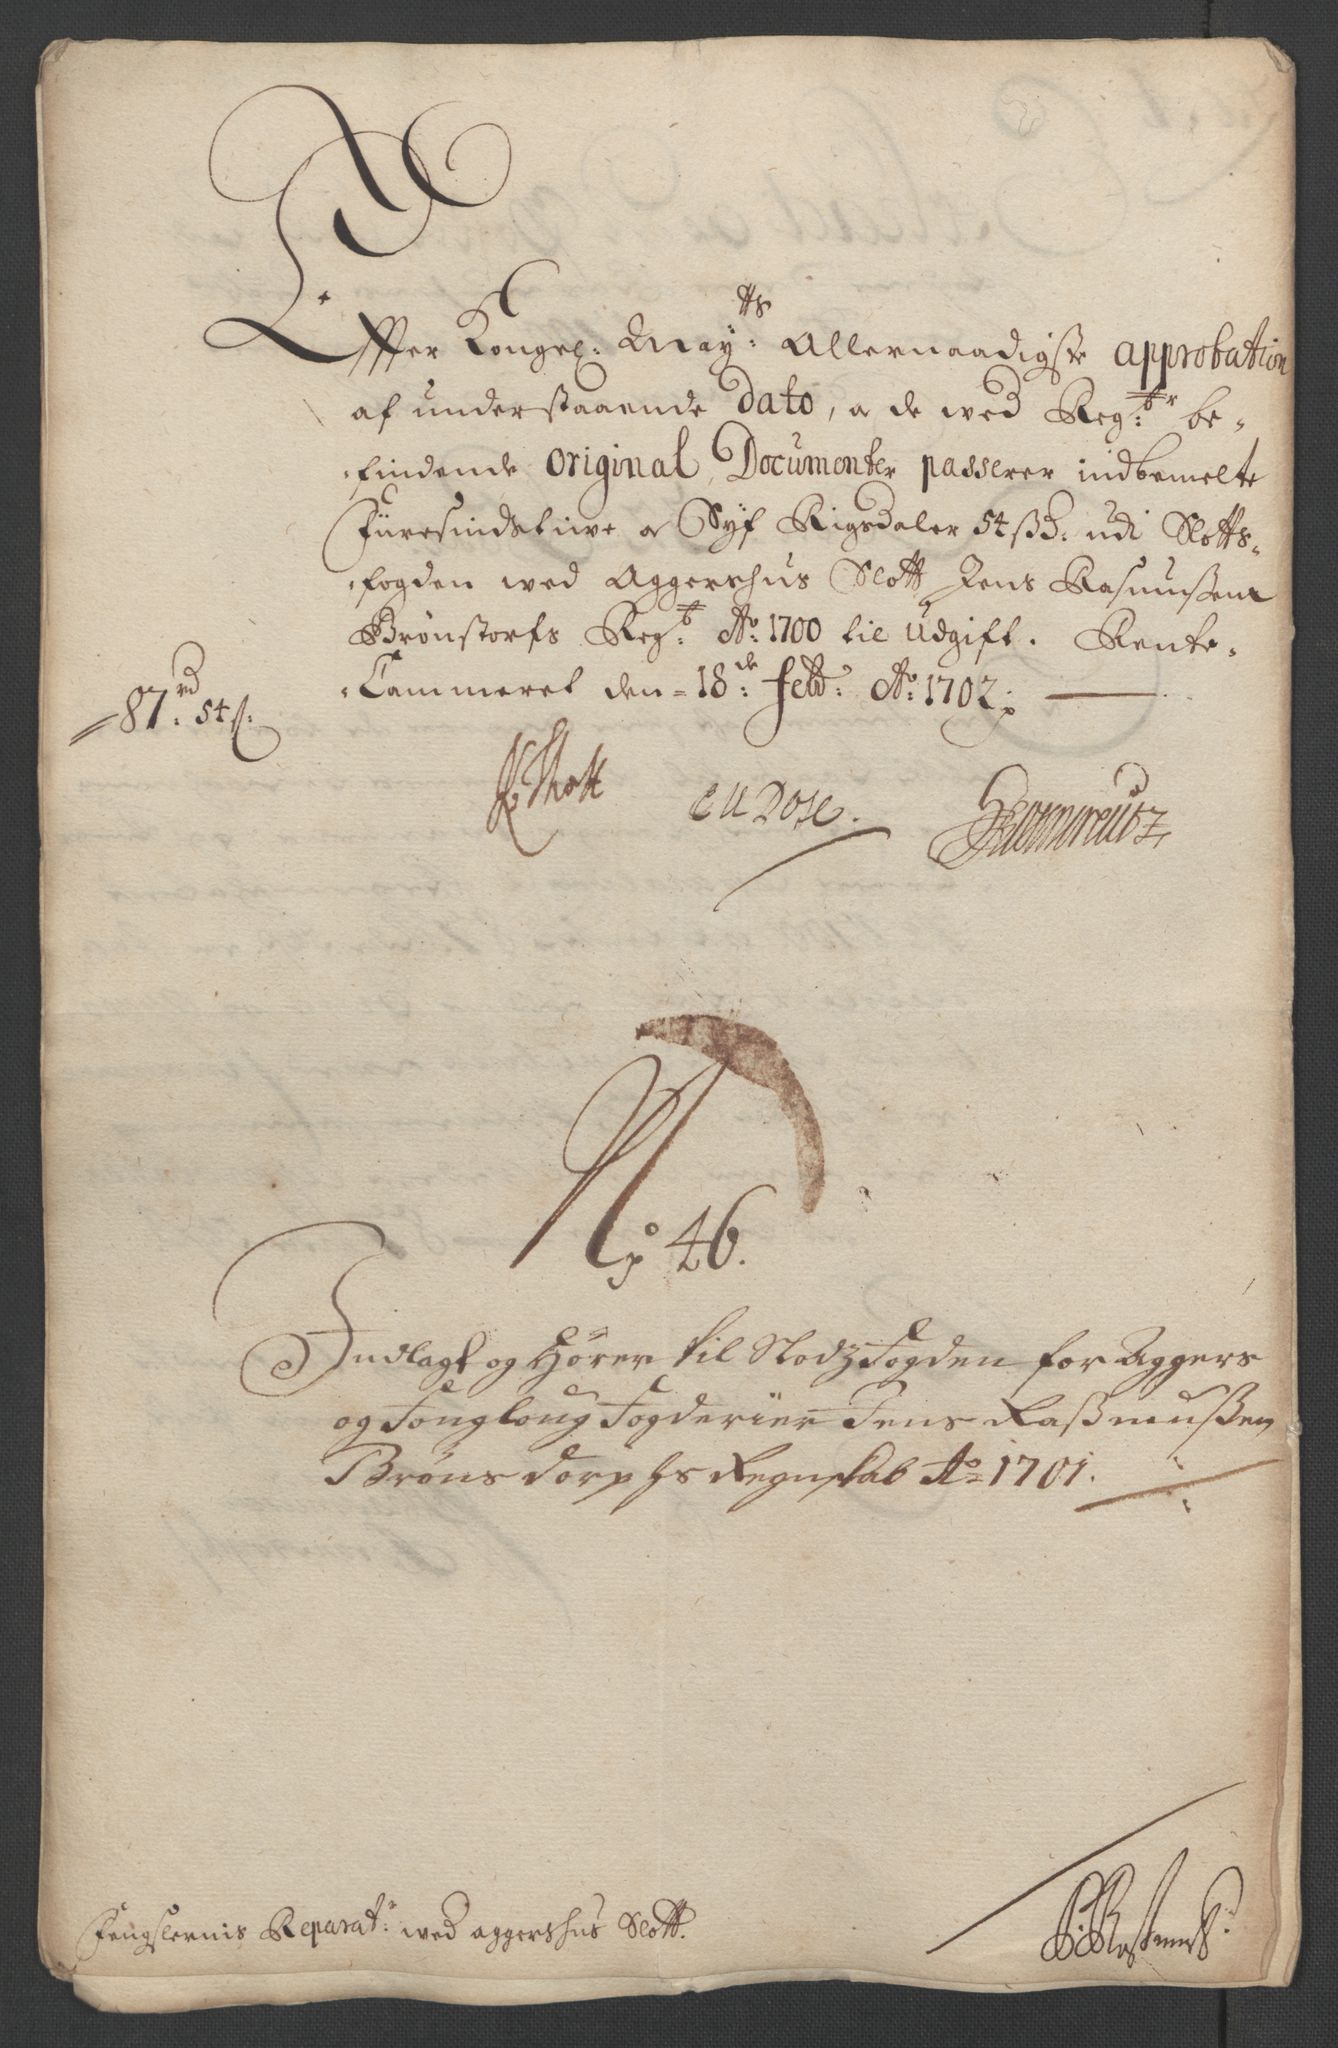 Efter Kongel: May:tts Allernaadigste approbation
af understaaende dato, a de ved Reg:br be-
findende original Documenter passerer indbemelte
Fiiresindstiuve a Syf Rigsdaler 54 ß d: udi Slotts-
fogden ved Aggershus Slott Jens Rasmusßens
Brønstorfs Reg:b Ao: 1700 til udgift. Rente-
Cammeret den 18de: Febr: Ao: 1702
87rd: 54 ß:
Thott
CUDose.
No 46.
Indlagt og Hører til Slodz Fogden for Aggers
og Fougloug Fogderier Jens Raßmußen
Brønsdorphs Regnskab Ao 1701.
Fengslernis Reparat: ved aggershus Slott.